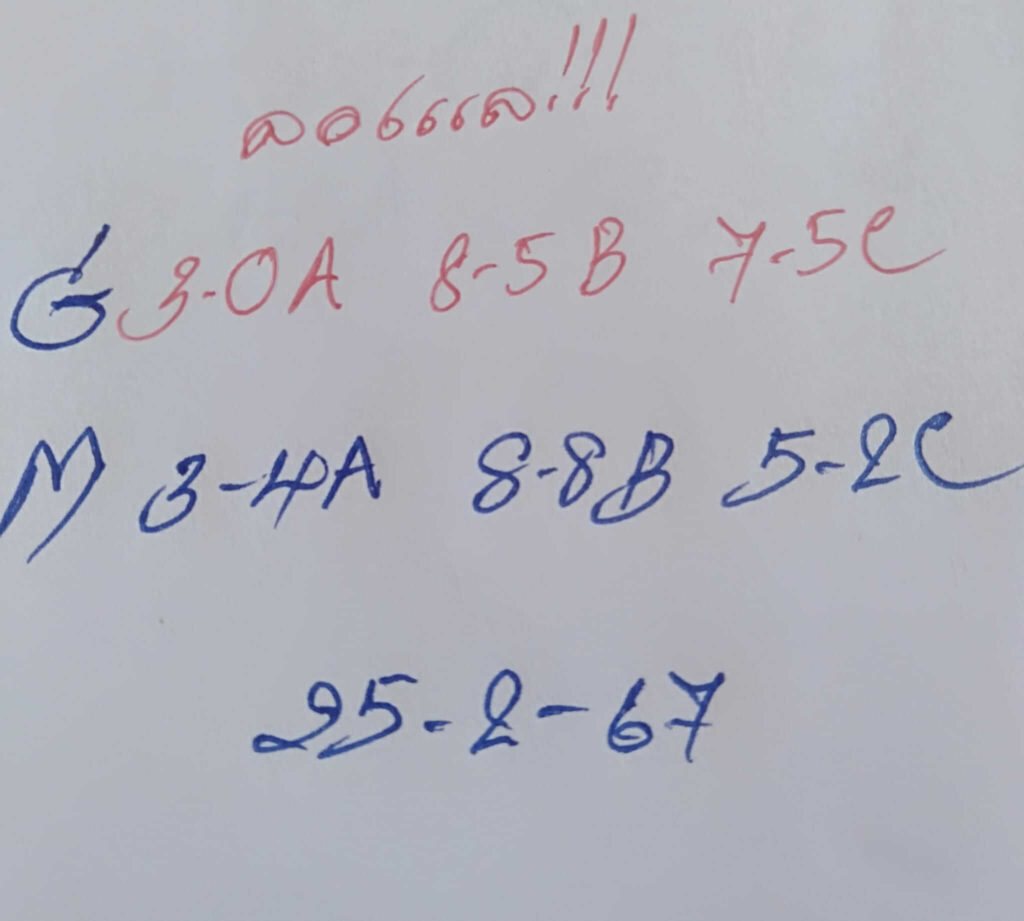 ลอรเเล!!!
G 3-0A 8-5B 7-5C
M 3-4A 8-8B 5-2C
25-2-67